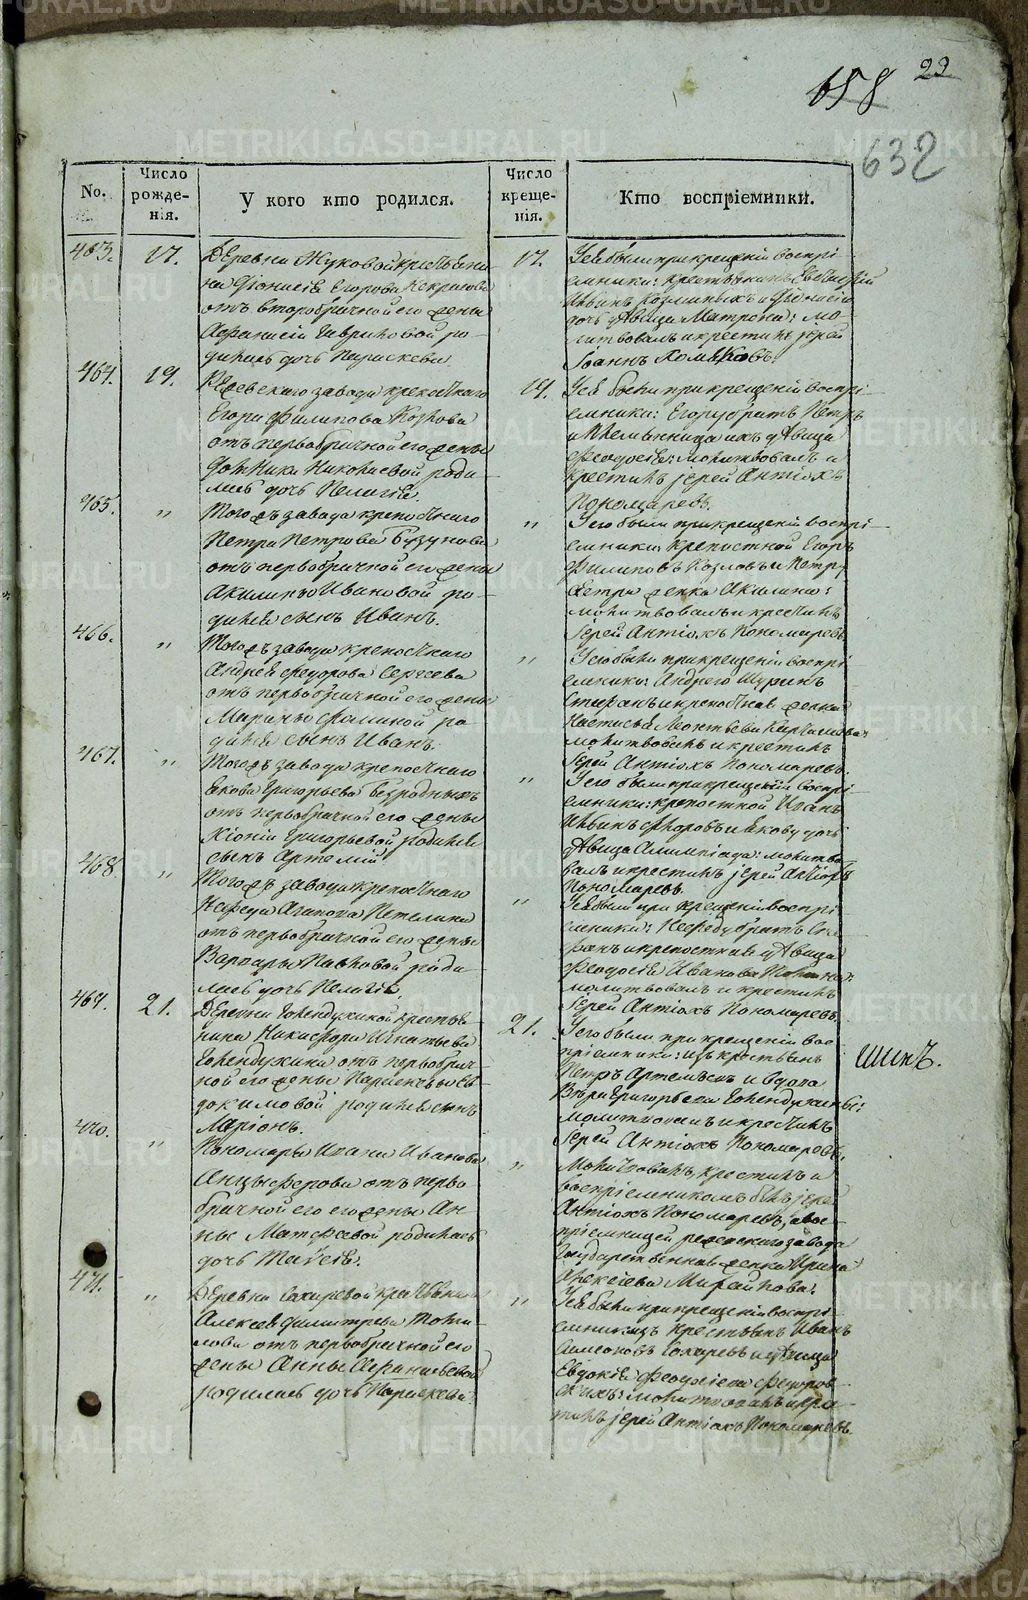 658 23
632
No.
Число рожде-нія.
У кого кто родился.
Число креще-нія.
Кто воспріемники.
463.
17.
Деревни Жуковой крестьяни-
на Діонисія Егорова Некрасова
отъ второбрачной его жены
Афанасіи Гавриловой ро-
дилась дочь Параскева.
17.
У ея были при крещеніи воспрі-
дочь дѣвица Матрона: мо-
литвовалъ и крестилъ іерей
Іоаннъ
464.
19.
Режевскаго завода крепостнаго
Егора Филипова Козлова
отъ первобрачной его жены
Домники Николаевой роди-
лась дочь Пелагія.
19.
У ея были при крещеніи воспрі-
емники: Егору братъ Петръ
дѣвица
Феодосія: молитвовалъ и
крестилъ іерей Антіохъ
Пономаревъ.
465.
"
Тогожъ завода крепостнаго
Петра Петрова Бузунова
отъ первобрачной его жены
Акилины Ивановой ро-
дился сынъ Иванъ.
"
У его были при крещеніи воспрі-
емники: крепостной Егоръ
Филиповъ Козловъ и Петру
женка Акилина:
молитвовалъ и крестилъ
іерей Антіохъ Пономаревъ.
466.
"
Тогожъ завода крепостнаго
Андрея Федорова Сергеева
отъ первобрачной его жены
Марины Фоминой ро-
дился сынъ Иванъ.
"
У его были при крещеніи воспрі-
емники: Андрею шуринъ
Стефанъ и крепостная женка
Настасья Леонтьева
молитвовалъ и крестилъ
іерей Антіохъ Пономаревъ.
467.
"
Тогожъ завода крепостнаго
Якова Григорьева Безродныхъ
отъ первобрачной его жены
Ксеніи Григорьевой родился
сынъ Артемій
"
У его были при крещеніи воспрі-
емники: крепостной Иванъ
и Якову дочь
дѣвица Алимпіада: молитво-
валъ и крестилъ іерей Антіохъ
Пономаревъ.
468
"
Тогожъ завода крепостнаго
Нефеда Агапова Петелина
отъ первобрачной его жены
Варвары Павловой роди-
лась дочь Пелагія.
"
У ея были при крещеніи воспрі-
емники: Нефеду братъ Сте-
фанъ и крепостная дѣвица
Феодосія Иванова
молитвовалъ и крестилъ
іерей Антіохъ Пономаревъ.
469.
21.
Деревни Голендухиной крестья-
нина Никифора Игнатьева
Голендухина отъ первобрач-
ной его жены Парменьи Ев-
докимовой родился сынъ
Ларіонъ.
21.
У его были при крещеніи вос-
пріемники: изъ крестьянъ
Петръ Артемьевъ и вдова
Вѣра Григорьева Голендухины:
молитвовалъ и крестилъ
іерей Антіохъ Пономаревъ.
470.
"
Пономаря Ивана Иванова
Анцыферова отъ перво-
брачной его жены Ан-
ны Матфеевой родилась
дочь Таисія.
"
Молитвовалъ, крестилъ и
воспріемникомъ былъ іерей
Антіохъ Пономаревъ, а вос-
пріемницей режевскаго завода
государственная женка Ирина
Алексіева
471.
"
Деревни Сохаревой крестьянина
Алексея Димитрева
отъ первобрачной его
жены Анны Афанасьевой
родилась дочь Параскева.
"
У ея были при крещеніи воспрі-
емники изъ крестьянъ Иванъ
Симеоновъ Сохаревъ и дѣвица
Евдокія
молитвовалъ и крес-
тилъ іерей Антіохъ Пономаревъ.